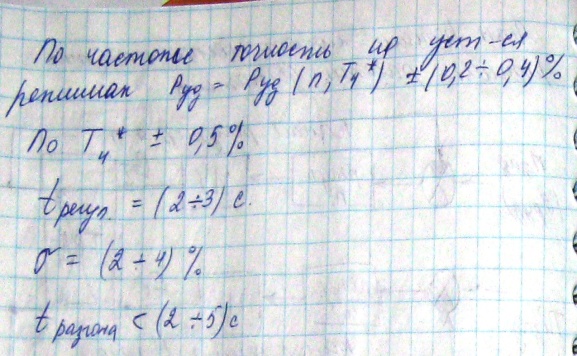 По частоте точность на уст-ся
режимах Pуд = Pуд (n, T₄*) ± (0,2 ÷ 0,4)%
По T₄* ± 0,5%
t регул = (2÷3) с.
σ = (2 ÷ 4) %
t разгона < (2 ÷ 5) с